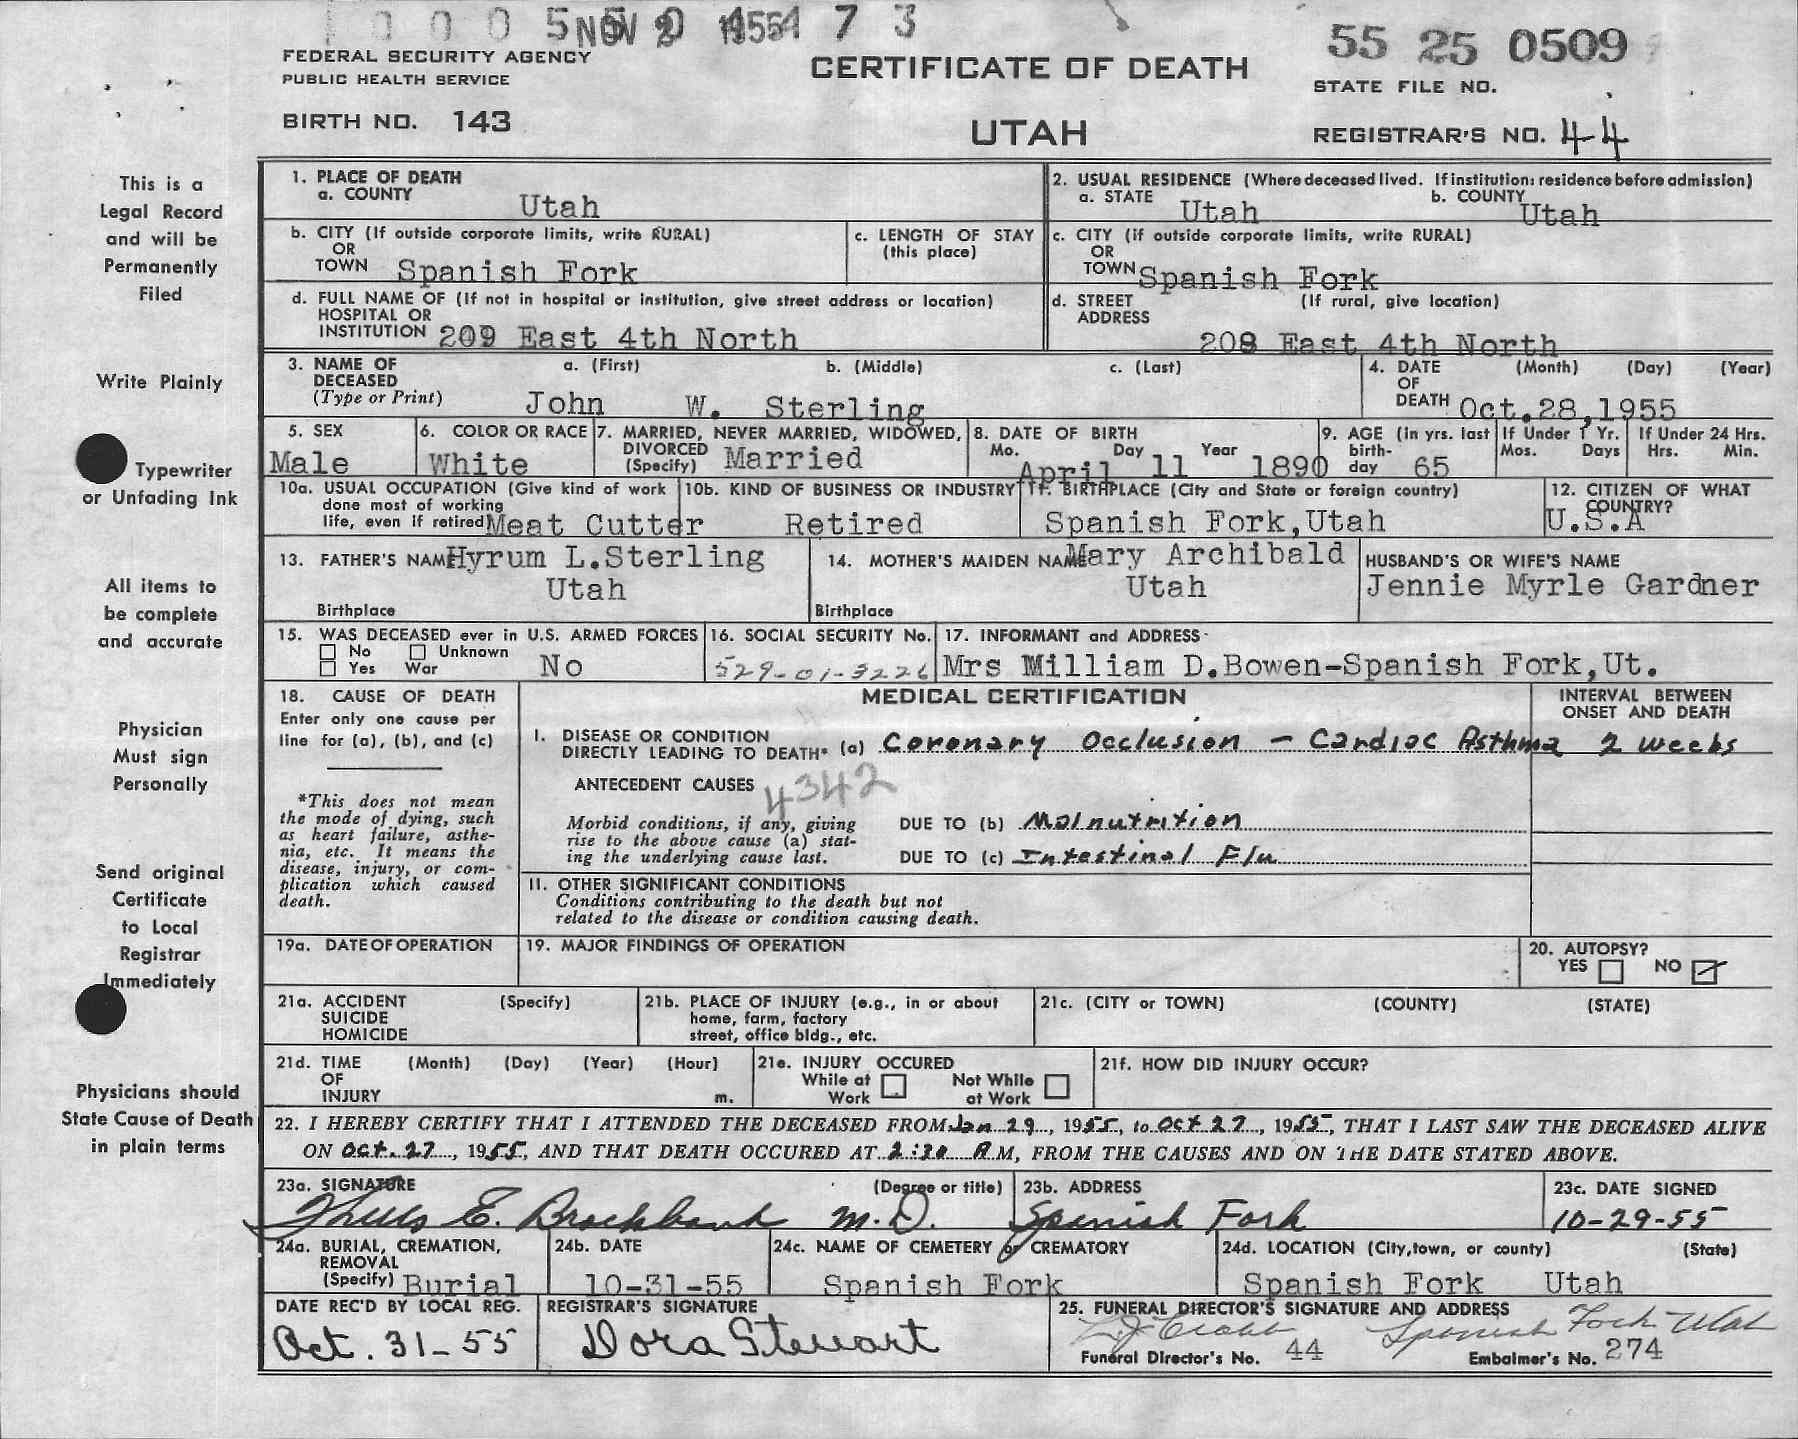 0 0 0 5 5 0 4 4 7 3
NOV 2 1955
55 25 0509
FEDERAL SECURITY AGENCY
PUBLIC HEALTH SERVICE
CERTIFICATE OF DEATH
STATE FILE NO.
BIRTH NO. 143
UTAH
REGISTRAR'S NO. 44
This is a
Legal Record
and will be
Permanently
Filed
Write Plainly
Typewriter
or Unfading Ink
All items to
be complete
and accurate
Physician
Must sign
Personally
Send original
Certificate
to Local
Registrar
Immediately
Physicians should
State Cause of Death
in plain terms
1. PLACE OF DEATH
a. COUNTY Utah
2. USUAL RESIDENCE (Where deceased lived. If institution: residence before admission)
a. STATE Utah b. COUNTY Utah
b. CITY (If outside corporate limits, write RURAL)
OR
TOWN Spanish Fork
c. LENGTH OF STAY
(this place)
c. CITY (if outside corporate limits, write RURAL)
OR
TOWN Spanish Fork
d. FULL NAME OF (If not in hospital or institution, give street address or location)
HOSPITAL OR
INSTITUTION 209 East 4th North
d. STREET (If rural, give location)
ADDRESS
208 East 4th North
3. NAME OF a. (First) b. (Middle) c. (Last)
DECEASED
(Type or Print) John W. Sterling
4. DATE (Month) (Day) (Year)
OF
DEATH Oct.28,1955
5. SEX
Male
6. COLOR OR RACE
White
7. MARRIED, NEVER MARRIED, WIDOWED,
DIVORCED
(Specify) Married
8. DATE OF BIRTH
Mo. Day Year
April 11 1890
9. AGE (in yrs. last
birth-
day 65
If Under 1 Yr.
Mos. Days
If Under 24 Hrs.
Hrs. Min.
10a. USUAL OCCUPATION (Give kind of work
done most of working
life, even if retired Meat Cutter
10b. KIND OF BUSINESS OR INDUSTRY
Retired
11. BIRTHPLACE (City and State or foreign country)
Spanish Fork,Utah
12. CITIZEN OF WHAT
COUNTRY?
U.S.A
13. FATHER'S NAME Hyrum L.Sterling
Utah
Birthplace
14. MOTHER'S MAIDEN NAME Mary Archibald
Utah
Birthplace
HUSBAND'S OR WIFE'S NAME
Jennie Myrle Gardner
15. WAS DECEASED ever in U.S. ARMED FORCES
No Unknown
Yes War No
16. SOCIAL SECURITY No.
529-01-3226
17. INFORMANT and ADDRESS
Mrs Milliam D.Bowen-Spanish Fork,Ut.
18. CAUSE OF DEATH
Enter only one cause per
line for (a), (b), and (c)
*This does not mean
the mode of dying, such
as heart failure, asthe-
nia, etc. It means the
disease, injury, or com-
plication which caused
death.
MEDICAL CERTIFICATION
INTERVAL BETWEEN
ONSET AND DEATH
I. DISEASE OR CONDITION
DIRECTLY LEADING TO DEATH* (a) Coronary Occlusion - Cardiac Asthma 2 weeks
ANTECEDENT CAUSES 4342
Morbid conditions, if any, giving
rise to the above cause (a) stat-
ing the underlying cause last.
DUE TO (b) Malnutrition
DUE TO (c) Intestinal Flu
II. OTHER SIGNIFICANT CONDITIONS
Conditions contributing to the death but not
related to the disease or condition causing death.
19a. DATE OF OPERATION
19. MAJOR FINDINGS OF OPERATION
20. AUTOPSY?
YES NO
21a. ACCIDENT (Specify)
SUICIDE
HOMICIDE
21b. PLACE OF INJURY (e.g., in or about
home, farm, factory
street, office bldg., etc.
21c. (CITY or TOWN) (COUNTY) (STATE)
21d. TIME (Month) (Day) (Year) (Hour)
OF
INJURY m.
21e. INJURY OCCURED
While at Work
Not While at Work
21f. HOW DID INJURY OCCUR?
22. I HEREBY CERTIFY THAT I ATTENDED THE DECEASED FROM Jan 29, 1955, to Oct 27, 1955, THAT I LAST SAW THE DECEASED ALIVE
ON Oct. 27, 1955, AND THAT DEATH OCCURED AT 2:20 A M, FROM THE CAUSES AND ON THE DATE STATED ABOVE.
23a. SIGNATURE (Degree or title)
E. Brockbank M.D.
23b. ADDRESS
Spanish Fork
23c. DATE SIGNED
10-29-55
24a. BURIAL, CREMATION,
REMOVAL
(Specify) Burial
24b. DATE
10-31-55
24c. NAME OF CEMETERY or CREMATORY
Spanish Fork
24d. LOCATION (City,town, or county) (State)
Spanish Fork Utah
DATE REC'D BY LOCAL REG.
Oct. 31-55
REGISTRAR'S SIGNATURE
Dora Stewart
25. FUNERAL DIRECTOR'S SIGNATURE AND ADDRESS
Spanish Fork Utah
Funeral Director's No. 44 Embalmer's No. 274